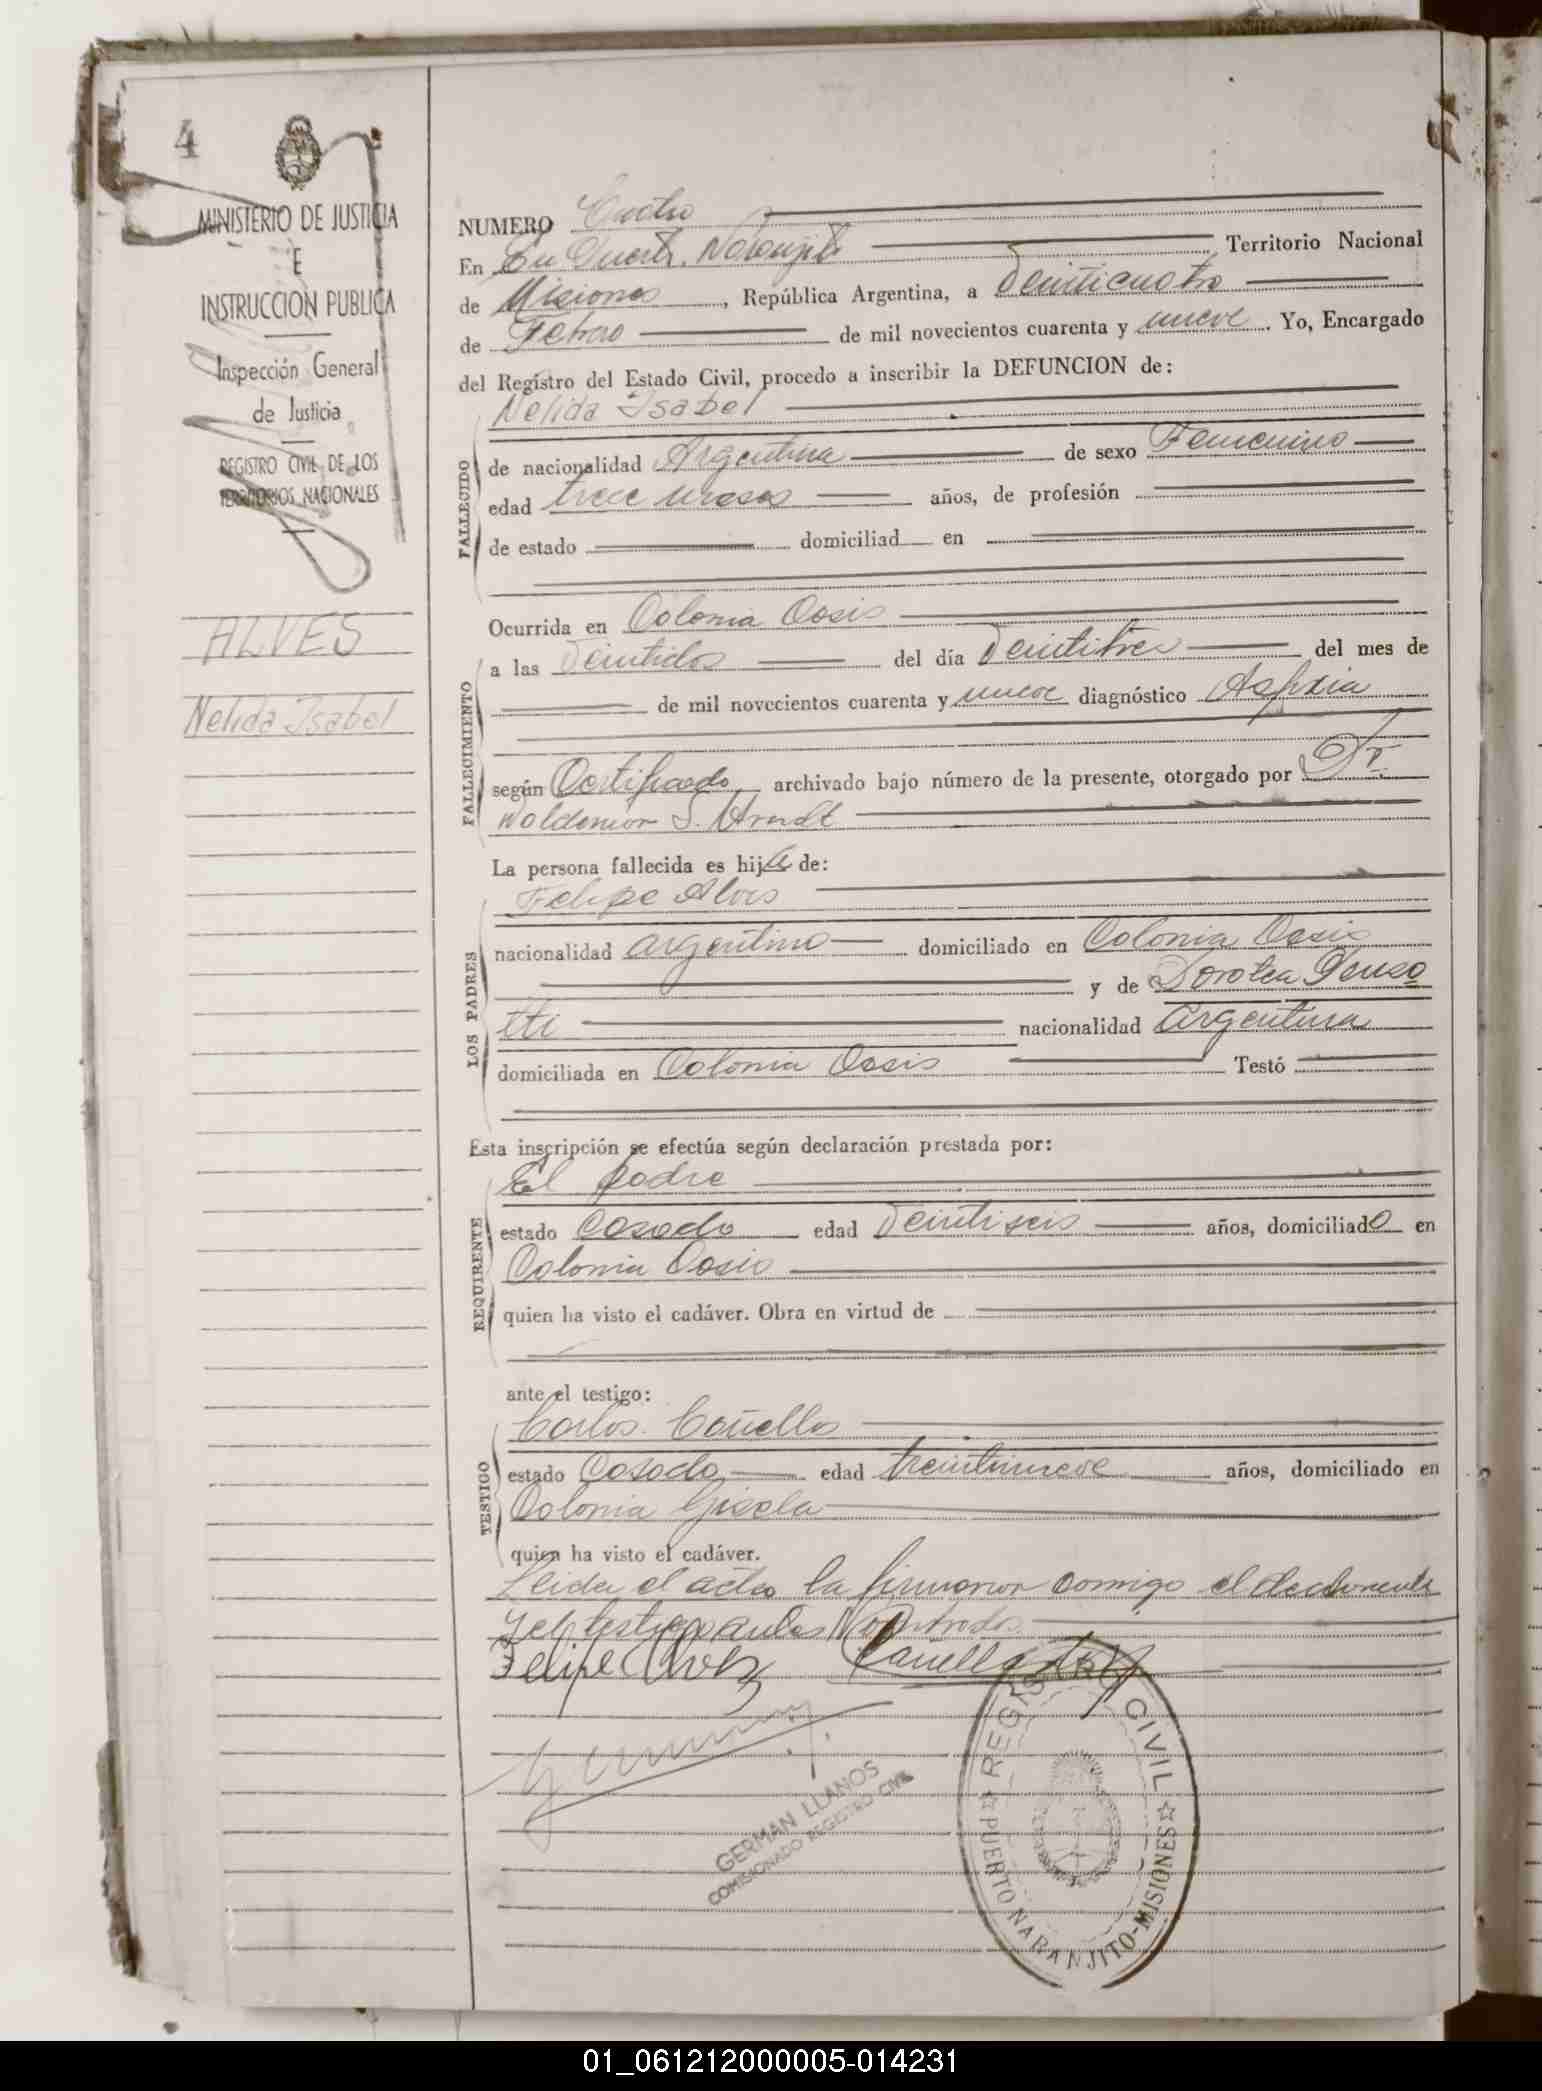 4
MINISTERIO DE JUSTICIA
E
INSTRUCCION PUBLICA
Inspección General
de Justicia
REGISTRO CIVIL DE LOS
TERRITORIOS NACIONALES
ALVES
Nelida Isabel
NUMERO Cuatro
En En Puerto Naranjito Territorio Nacional
de Misiones, República Argentina, a Veinticuatro
de Febrero de mil novecientos cuarenta y nueve. Yo, Encargado
del Registro del Estado Civil, procedo a inscribir la DEFUNCION de:
Nelida Isabel
FALLECIDO
de nacionalidad Argentina de sexo Femenino
edad trece meses años, de profesión
de estado domiciliad en
Ocurrida en Colonia Oasis
FALLECIMIENTO
a las Veintidos del día Veintitres del mes de
de mil novecientos cuarenta y nueve diagnóstico Asfixia
según Certificado archivado bajo número de la presente, otorgado por Dr.
Waldemar S. Arndt
La persona fallecida es hija de:
LOS PADRES
Felipe Alves
nacionalidad argentino domiciliado en Colonia Oasis
y de Dorotea
tti nacionalidad argentina
domiciliada en Colonia Oasis Testó
Esta inscripción se efectúa según declaración prestada por:
REQUIRENTE
El padre
estado Casado edad Veintiseis años, domiciliado en
Colonia Oasis
quien ha visto el cadáver. Obra en virtud de
ante el testigo:
TESTIGO
Carlos
estado Casado edad treintinueve años, domiciliado en
Colonia Gisela
quien ha visto el cadáver.
Leida el acta la firmaron conmigo el declarante
y el testigo antes Nombrados
Felipe Alves
GERMAN LLANOS
COMISIONADO REGISTRO CIVIL
REGISTRO CIVIL
PUERTO NARANJITO-MISIONES
01_061212000005-014231